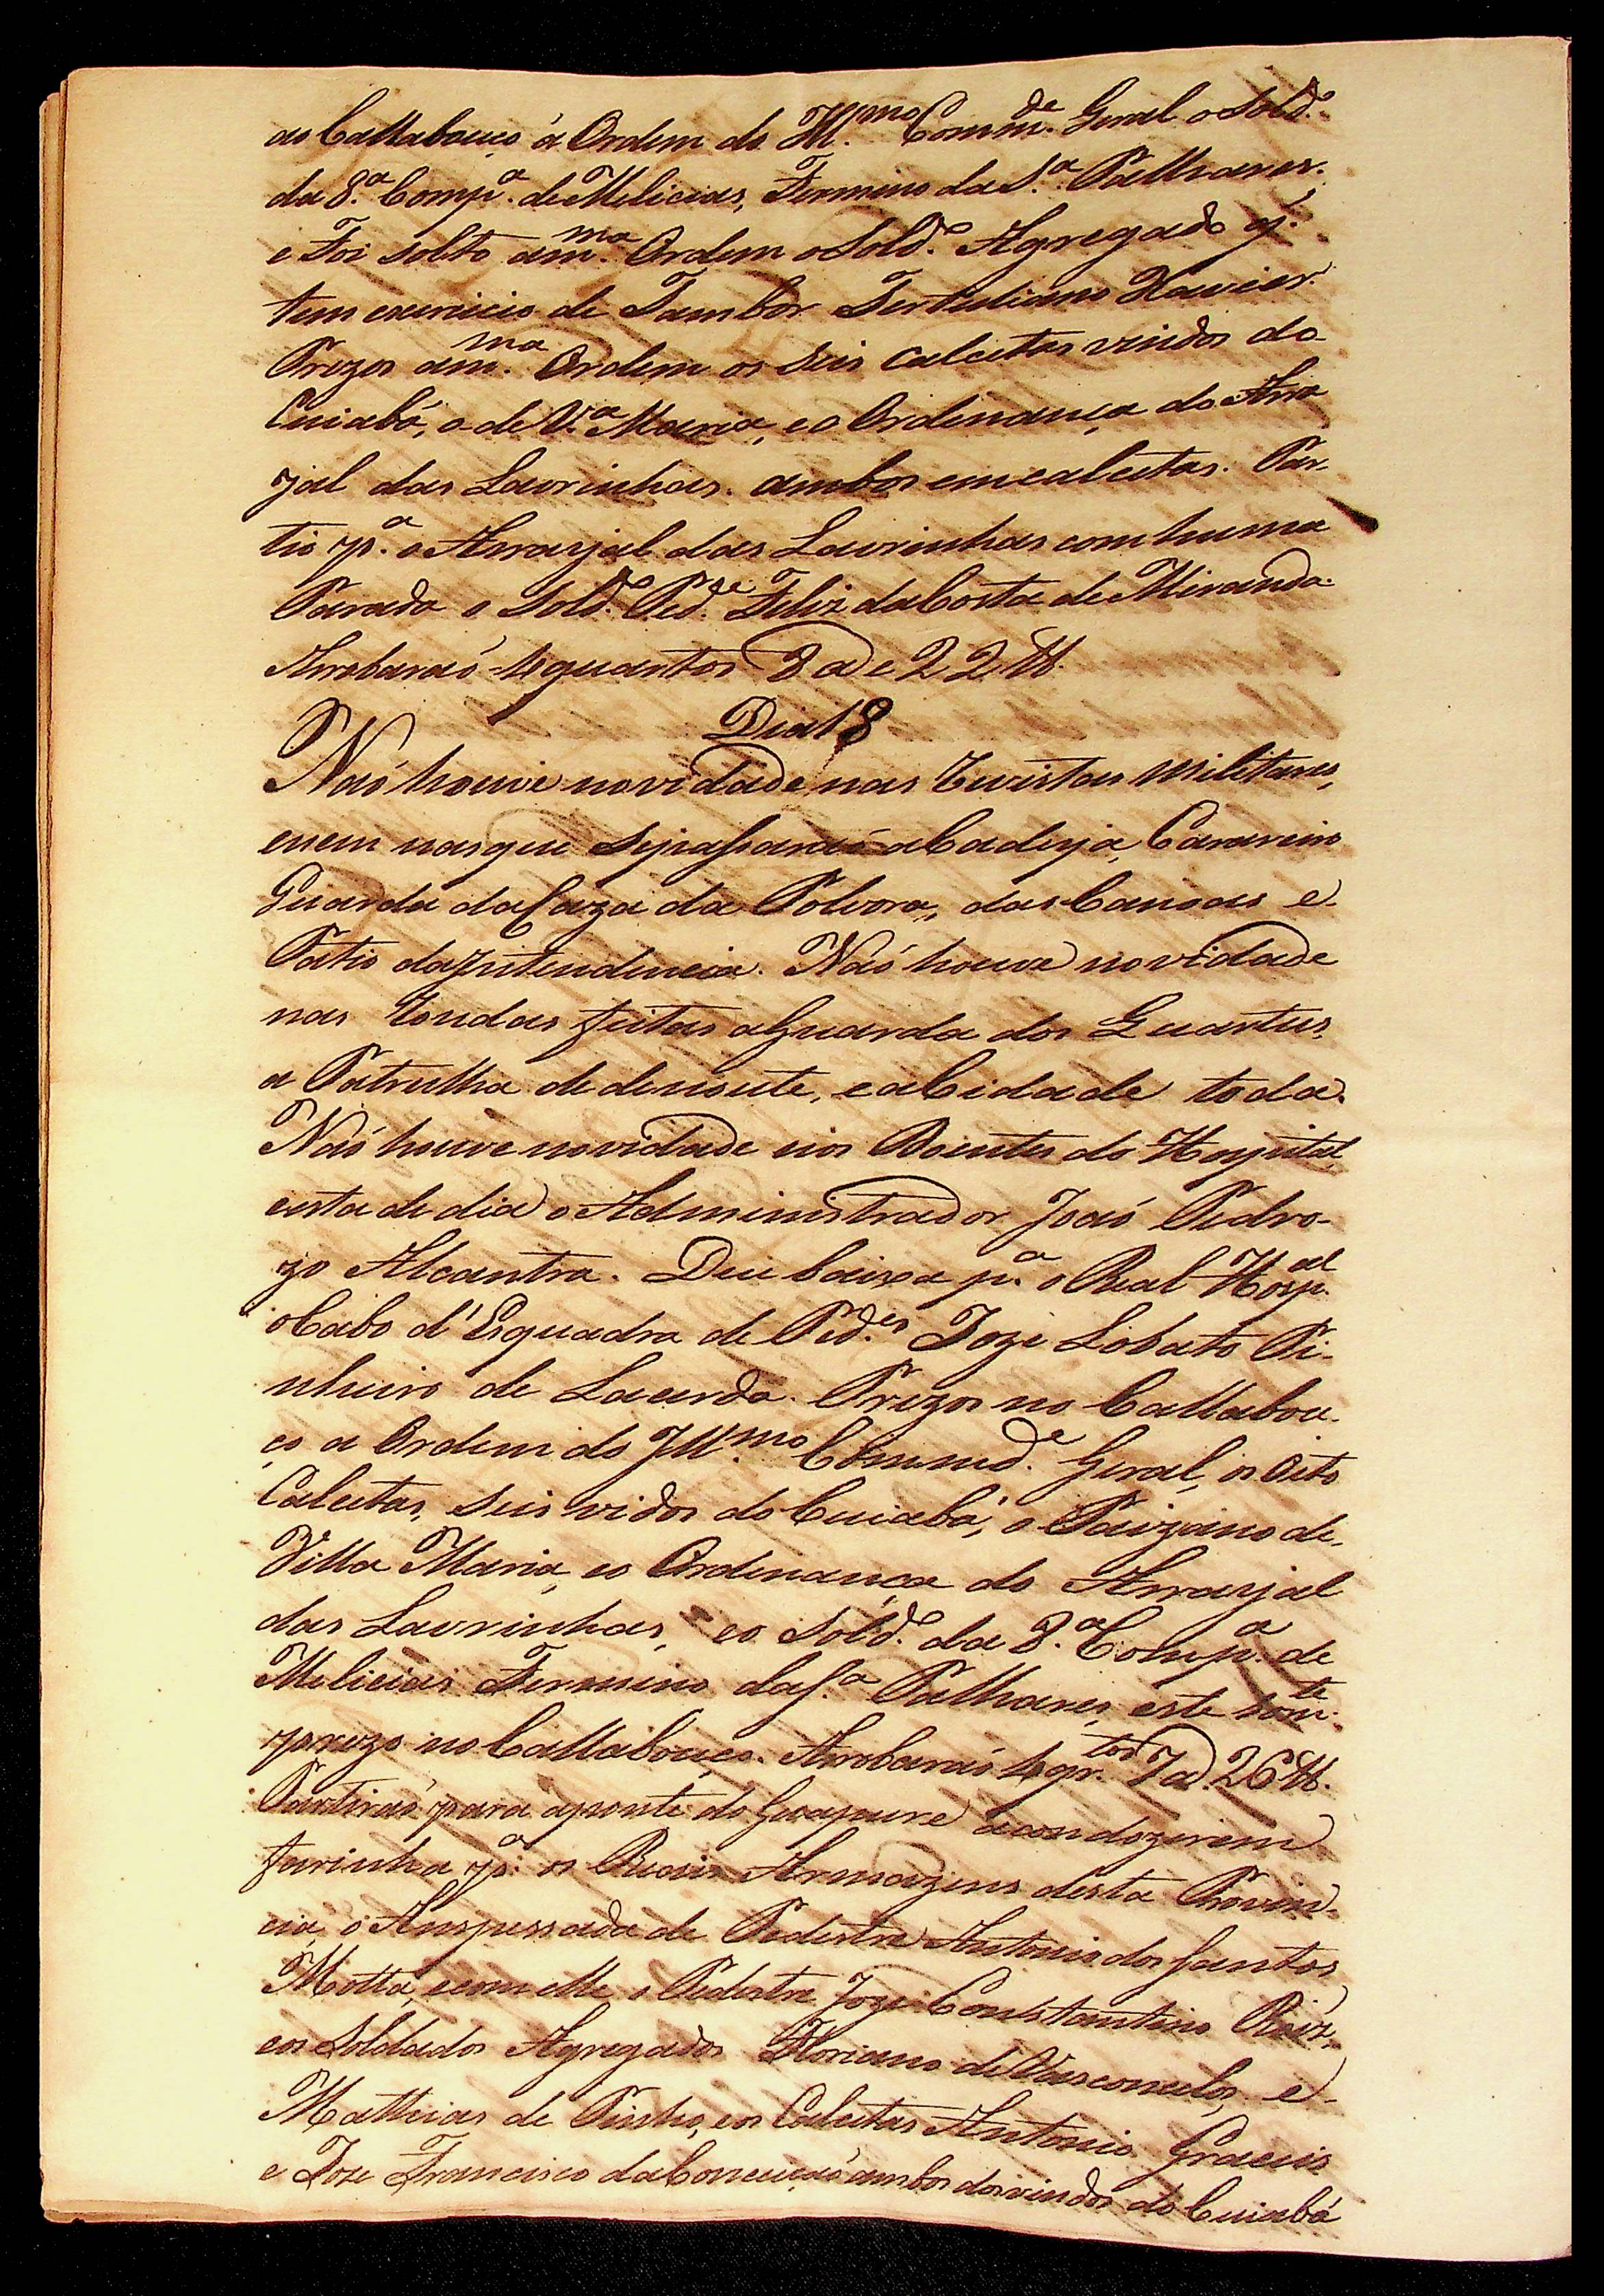 ao Callabouço á Ordem do Ill.mo Comm.de Geral o Sold.o
da 8.a Comp.a de Melicias, Fermino da S.a Palhares.
e Foi solto a m.ma Ordem o Sold.o Agregado q.
tem exercicio de Tambor Tertuliano Xavier.
Prezos a m.ma Ordem os Seis Calcetas vindos do
Cuiabá, o de V.a Maria, e o Ordenança do Arra
jal das Lavrinhas. ambos em calcetas. Par-
tio p.a o Arrayal das Lavrinhas com huma
Parada o Sold.o Ped.e Feliz da Costa de Miranda.
Arrobaraó 4 quartos 8 @ e 22 ℔.
Dia 18
Naó houve novidade nas revistas Militares,
e nem nas que se passaraó a Cadeya, Carareiro
Guarda da Caza da Polvora, das Canoas e
Patio da Intendencia. Naó houve novidade
nas rondas feitas a Guarda dos Quarteis,
a Patrulha de denoute, e a Cidade toda.
Naó houve novidade nos Doentes do Hospital
esta de dia o Administrador Joaó Pedro-
zo Alcantra. Deu baixa p.a o Real Hosp.al
o Cabo d'Esquadra de Ped.es Joze Lobato Pi-
nheiro de Lacerda. Prezos no Callabou-
ço a Ordem do Ill.mo Comm.de Geral, os Oito
Calcetas, seis vidos do Cuiabá, o Paizano de
Villa Maria, e o Ordenança do Arrayal
das Lavrinhas, e o Sold.o da 8.a Comp.a de
Melicias Fermino da S.a Palhares, este som.te
prezo no Callabouço. Arrobaraó 4 qr.tos 7 @ 26 ℔.
Partiraó para aponte do Guapure a condozirem
farinha p.a os Reais Armazens desta Provin-
cia, o Anspessada de Pedestre Antonio dos Santos
Motta, e com elle o Pedestre Joze Constantino Roiz,
e os Soldados Agregados Floriano de Vasconcelos, e
Mathias de Pinho, e os Calcetas Antonio Graceis
e Joze Francisco da Conceiçaó ambos dos vindos do Cuiabá